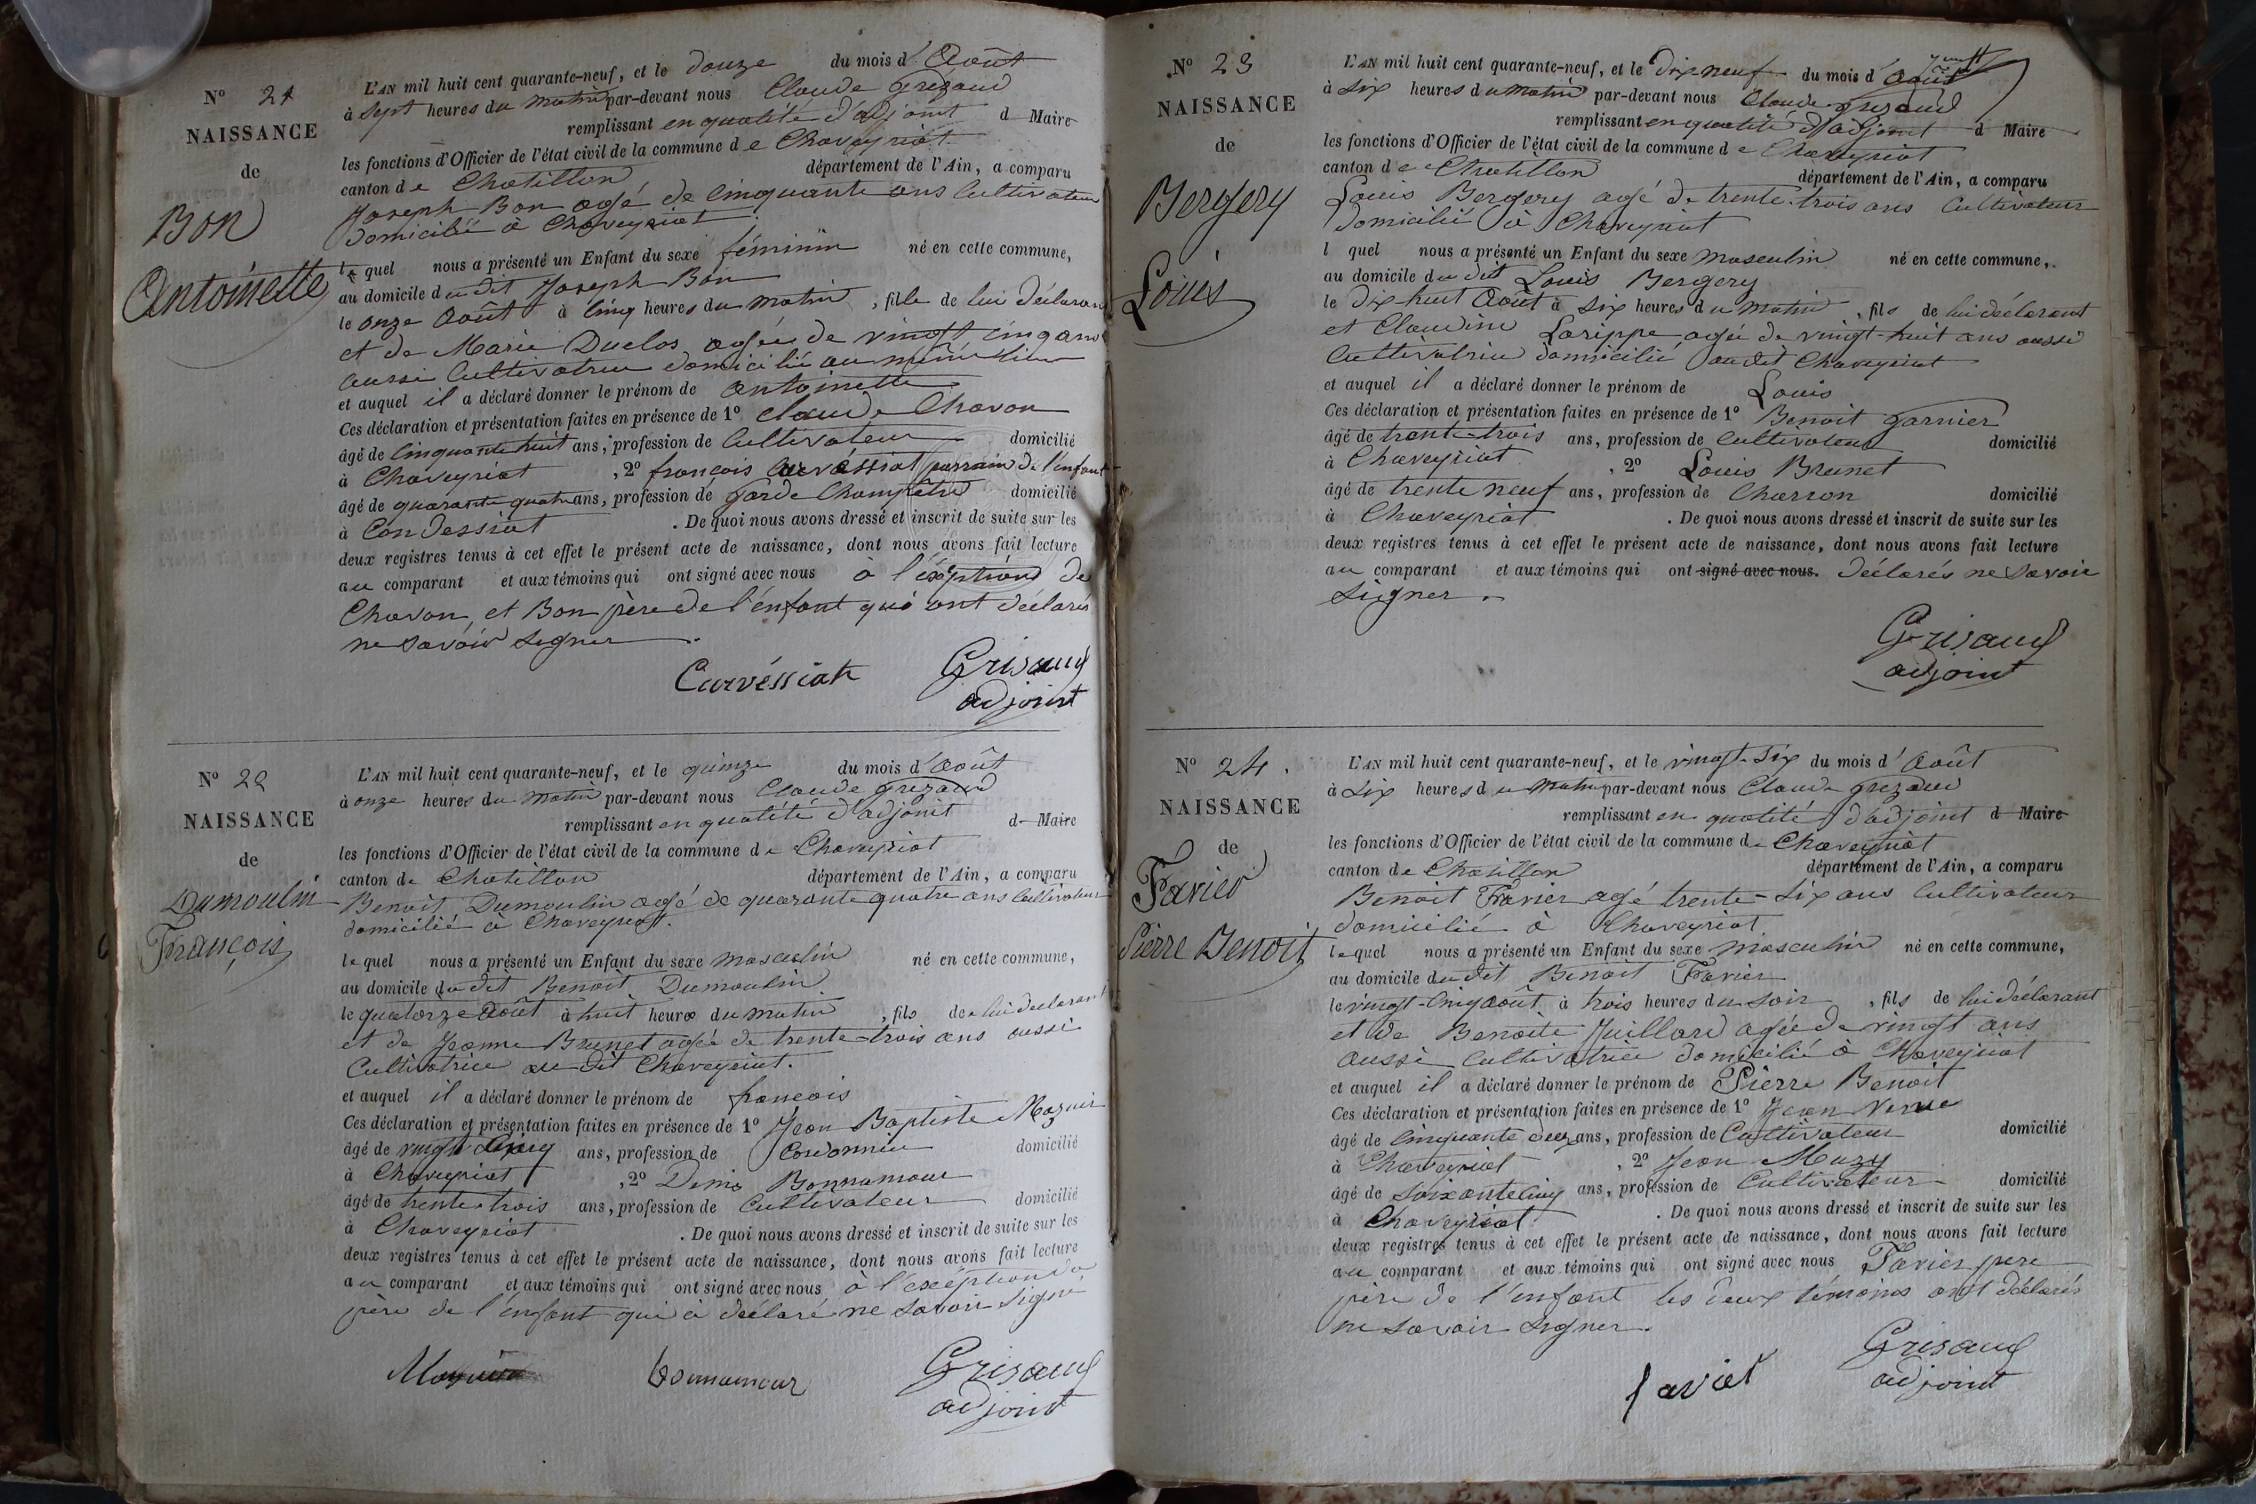 N° 21
NAISSANCE
de
Bon
Antoinette
L'AN mil huit cent quarante-neuf, et le douze du mois d'Août
à sept heures du matin par-devant nous Claude Grezaud
remplissant en qualité d'adjoint d Maire
les fonctions d'Officier de l'état civil de la commune de Chaveyriat
canton de Chatillon département de l'Ain, a comparu
Joseph Bon agé de cinquante ans Cultivateur
domicilié à Chaveyriat
lequel nous a présenté un Enfant du sexe féminin né en cette commune,
au domicile du dit Joseph Bon
le onze Août à cinq heures du matin, fille de lui déclarant
et de Marie Duclos agée de vingt cinq ans
aussi Cultivatrice domicilié au même lieu
et auquel il a déclaré donner le prénom de antoinette
Ces déclaration et présentation faites en présence de 1° Claude Chavon
âgé de cinquante huit ans, profession de Cultivateur domicilié
à Chaveyriat, 2° françois Curvéssiat parrain de l'enfant
âgé de quarante quatre ans, profession de Garde Champêtre domicilié
à Condessiat. De quoi nous avons dressé et inscrit de suite sur les
deux registres tenus à cet effet le présent acte de naissance, dont nous avons fait lecture
au comparant et aux témoins qui ont signé avec nous à l'éxeption de
Chavon, et Bon père de l'enfant qui ont déclarés
ne savoir signer.
Curvéssiat Grisaud
adjoint
N° 22
NAISSANCE
de
Dumoulin
François
L'AN mil huit cent quarante-neuf, et le quinze du mois d'Août
à onze heures du matin par-devant nous Claude Grezaud
remplissant en qualité d'adjoint d Maire
les fonctions d'Officier de l'état civil de la commune de Chaveyriat
canton de Chatillon département de l'Ain, a comparu
Benoit Dumoulin agé de quarante quatre ans Cultivateur
domicilié à Chaveyriat.
lequel nous a présenté un Enfant du sexe masculin né en cette commune,
au domicile du dit Benoit Dumoulin
le quatorze Août à huit heures du matin, fils de lui déclarant
et de Jeanne Brunet agée de trente-trois ans aussi
Cultivatrice au dit Chaveyriat.
et auquel il a déclaré donner le prénom de françois
Ces déclaration et présentation faites en présence de 1° Jean Baptiste Mazuir
âgé de vingt cinq ans, profession de Cordonnier domicilié
à Chaveyriat, 2° Denis Bonnamour
âgé de trente-trois ans, profession de Cultivateur domicilié
à Chaveyriat. De quoi nous avons dressé et inscrit de suite sur les
deux registres tenus à cet effet le présent acte de naissance, dont nous avons fait lecture
au comparant et aux témoins qui ont signé avec nous à l'exéption du
père de l'enfant qui à déclaré ne savoir signé
bonnamour Grisaud
adjoint
N° 23
NAISSANCE
de
Bergery
Louis
L'AN mil huit cent quarante-neuf, et le dix neuf du mois d'août
à six heures du matin par-devant nous Claude Grezaud
remplissant en qualité d'adjoint d Maire
les fonctions d'Officier de l'état civil de la commune de Chaveyriat
canton de Chatillon département de l'Ain, a comparu
Louis Bergery agé de trente-trois ans Cultivateur
domicilié à Chaveyriat
l quel nous a présenté un Enfant du sexe masculin né en cette commune,
au domicile du dit Louis Bergery
le dix-huit Août à six heures du matin, fils de lui déclarant
et Claudine Larippe agée de vingt-huit ans aussi
Cultivatrice domicilié au dit Chaveyriat
et auquel il a déclaré donner le prénom de Louis
Ces déclaration et présentation faites en présence de 1° Benoit Garnier
âgé de trente-trois ans, profession de Cultivateur domicilié
à Chaveyriat, 2° Louis Brunet
âgé de trente neuf ans, profession de Charron domicilié
à Chaveyriat. De quoi nous avons dressé et inscrit de suite sur les
deux registres tenus à cet effet le présent acte de naissance, dont nous avons fait lecture
au comparant et aux témoins qui ont signé avec nous. déclarés ne savoir
signer.
Grisaud
adjoint
N° 24.
NAISSANCE
de
Favier
Pierre Benoit
L'AN mil huit cent quarante-neuf, et le vingt-six du mois d'Août
à six heures du matin par-devant nous Claude Grezaud
remplissant en qualité d'adjoint d Maire
les fonctions d'Officier de l'état civil de la commune de Chaveyriat
canton de Chatillon département de l'Ain, a comparu
Benoit Favier agé trente-six ans Cultivateur
domicilié à Chaveyriat
lequel nous a présenté un Enfant du sexe masculin né en cette commune,
au domicile du dit Benoit Favier
le vingt-cinq août à trois heures du soir, fils de lui déclarant
et de Benoite Juillard agée de vingt ans
aussi Cultivatrice domicilié à Chaveyriat
et auquel il a déclaré donner le prénom de Pierre Benoit
Ces déclaration et présentation faites en présence de 1° Jean
âgé de cinquante deux ans, profession de Cultivateur domicilié
à Chaveyriat, 2° Jean Muzy
âgé de soixante cinq ans, profession de Cultivateur domicilié
à Chaveyriat. De quoi nous avons dressé et inscrit de suite sur les
deux registres tenus à cet effet le présent acte de naissance, dont nous avons fait lecture
au comparant et aux témoins qui ont signé avec nous Favier pere
père de l'enfant les deux témoins ont déclarés
ne savoir signer.
favier Grisaud
adjoint